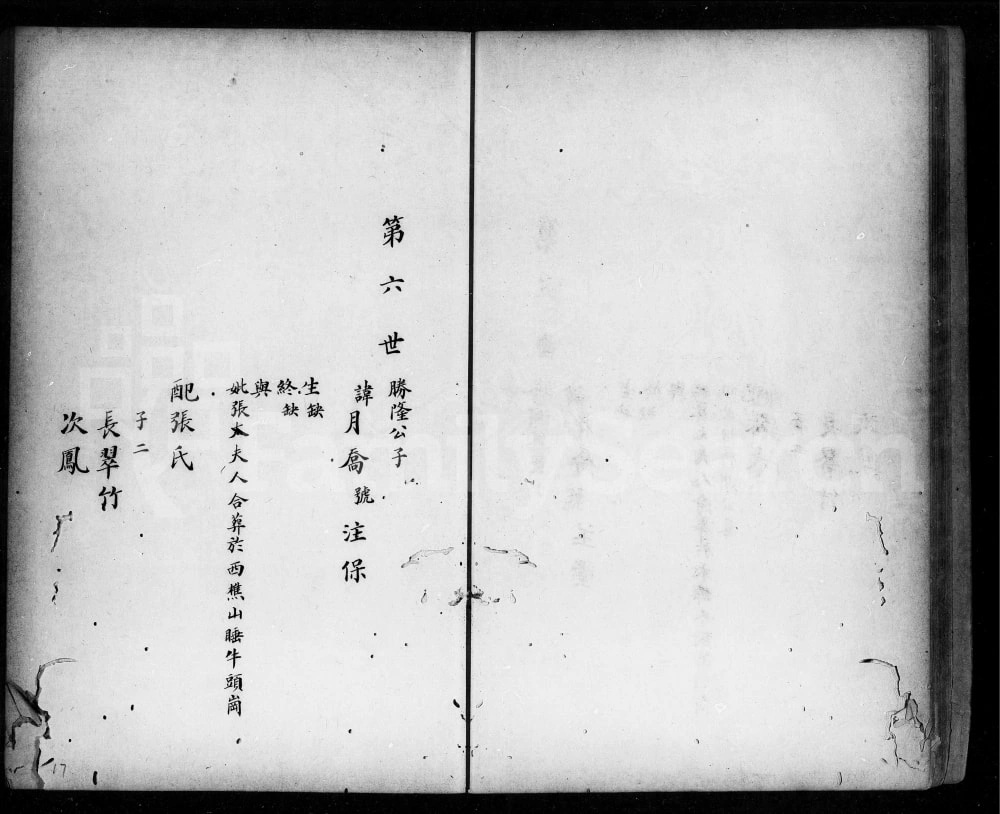 第六世
勝隆公子
諱月喬號注保
生缺
終缺
與
妣張太夫人合葬於西樵山睡牛頭崗
配張氏
子二
長翠竹
次鳳
17